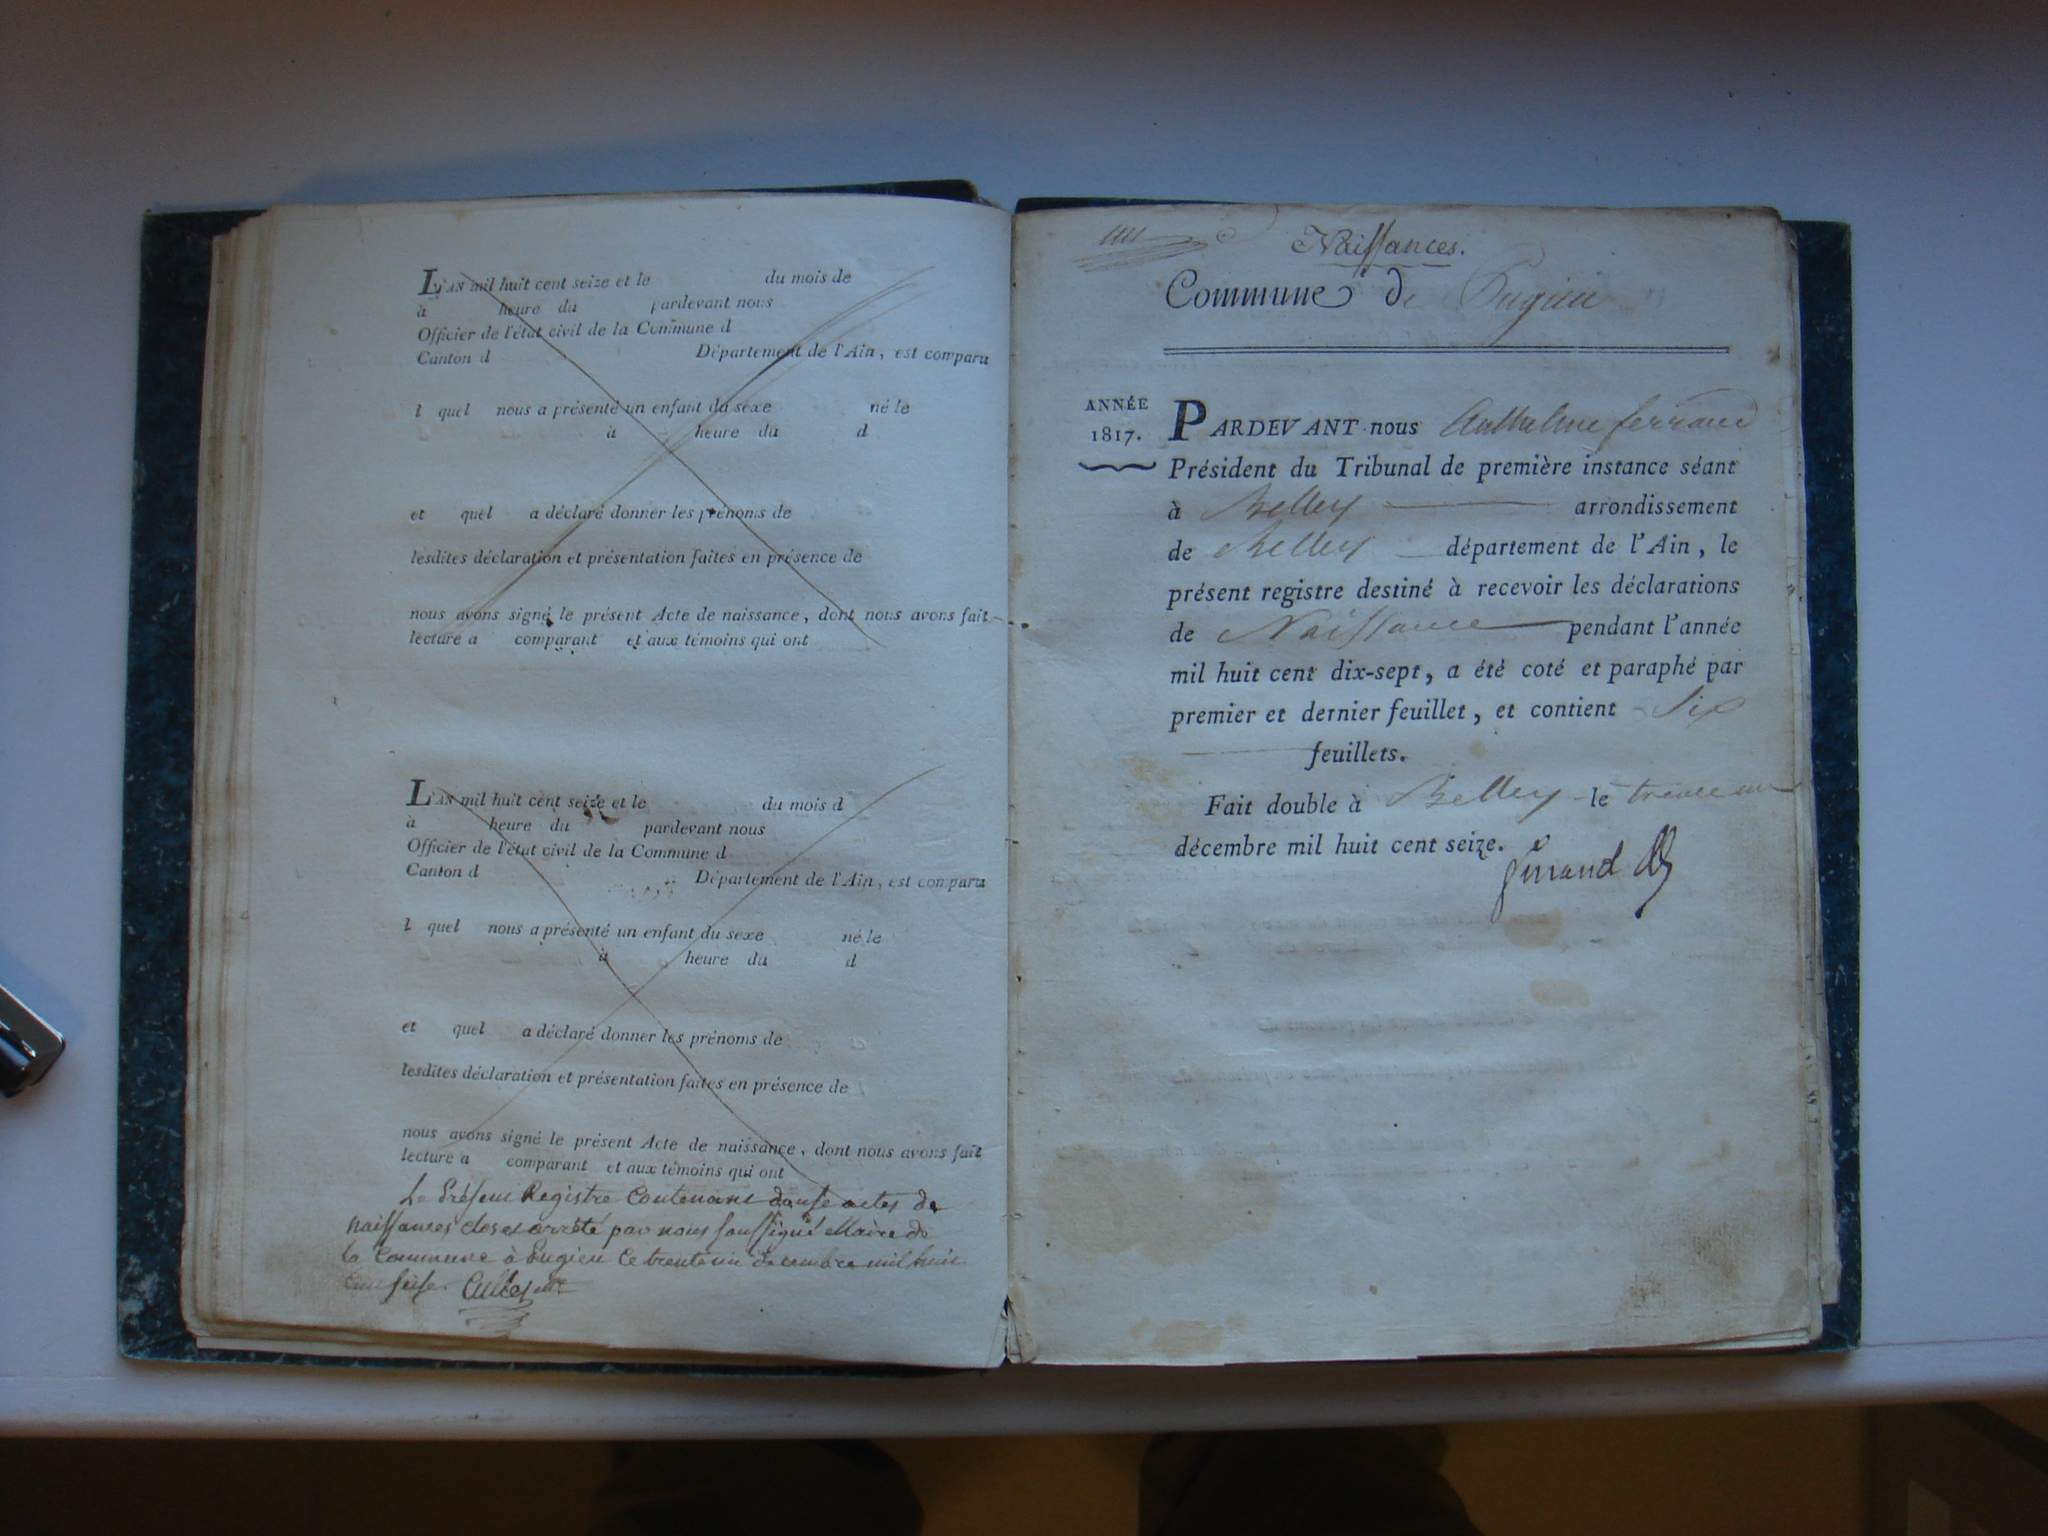 L'AN mil huit cent seize et le du mois de
à heure du pardevant nous
Officier de l'état civil de la Commune d
Canton d Département de l'Ain, est comparu
l quel nous a présenté un enfant du sexe né le
à heure du d
et quel a déclaré donner les prénoms de
lesdites déclaration et présentation faites en présence de
nous avons signé le présent Acte de naissance, dont nous avons fait
lecture a comparant et aux témoins qui ont
L'AN mil huit cent seize et le du mois d
à heure du pardevant nous
Officier de l'état civil de la Commune d
Canton d Département de l'Ain, est comparu
l quel nous a présenté un enfant du sexe né le
à heure du d
et quel a déclaré donner les prénoms de
lesdites déclaration et présentation faites en présence de
nous avons signé le présent Acte de naissance, dont nous avons fait
lecture a comparant et aux témoins qui ont
Le Présent Registre Contenant douse actes de
naissances clos et arrêté par nous soussigné Maire de
la Commune à Pugieu ce trente un decembre mil huit
cent seise.
Naissances.
Commune de Pugieu
ANNÉE
1817.
PARDEVANT nous Anthelme ferrand
Président du Tribunal de première instance séant
à Belley arrondissement
de Belley département de l'Ain, le
présent registre destiné à recevoir les déclarations
de Naissance pendant l'année
mil huit cent dix-sept, a été coté et paraphé par
premier et dernier feuillet, et contient Six
feuillets.
Fait double à Belley le trente un
décembre mil huit cent seize.